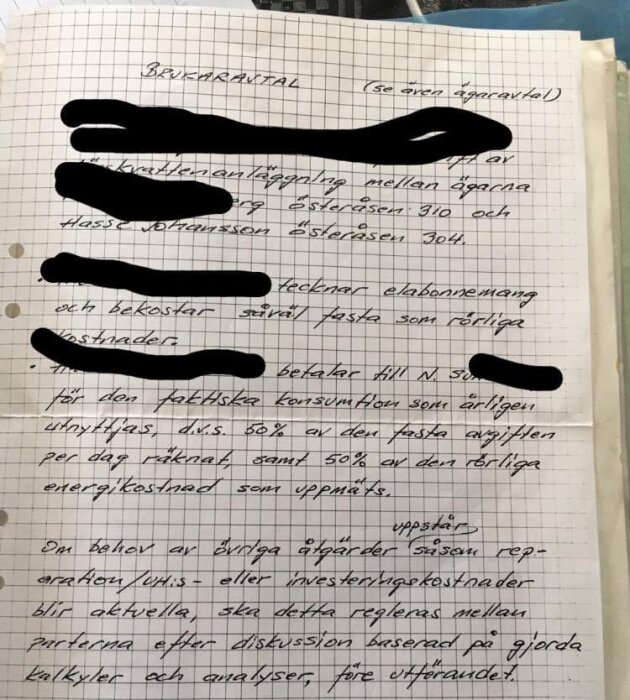 BRUKARAVTAL (se även ägaravtal)
av
anläggning mellan ägarna
Österåsen 310 och
Hasse Johansson Österåsen 304.
tecknar elabonnemang
och bekostar såväl fasta som rörliga
kostnader.
betalar till N.
för den faktiska konsumtion som årligen
utnyttjas, d.v.s. 50% av den fasta avgiften
per dag räknat, samt 50% av den rörliga
energikostnad som uppmäts.
uppstår
Om behov av övriga åtgärder såsom rep-
aration/UH:s- eller investeringskostnader
blir aktuella, ska detta regleras mellan
parterna efter diskussion baserad på gjorda
kalkyler och analyser, före utförandet.